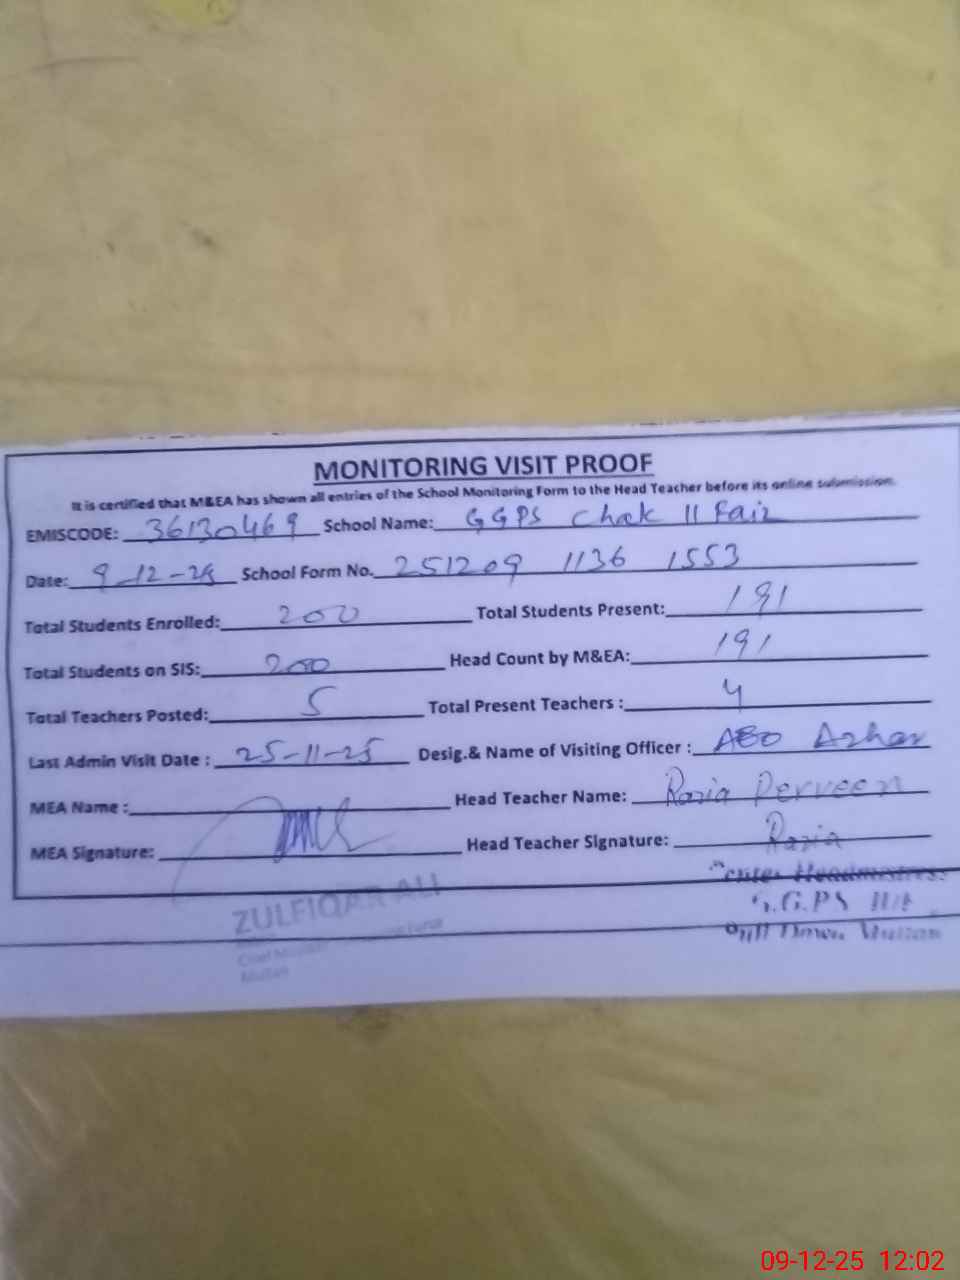 MONITORING VISIT PROOF
It is certified that M&EA has shown all entries of the School Monitoring Form to the Head Teacher before its online submission.
EMISCODE: 36130469 School Name: GGPS Chak 11 Faiz
Date: 9-12-25 School Form No. 251209 1136 1553
Total Students Enrolled: 200 Total Students Present: 191
Total Students on SIS: 200 Head Count by M&EA: 191
Total Teachers Posted: 5 Total Present Teachers : 4
Last Admin Visit Date : 25-11-25 Desig.& Name of Visiting Officer : AEO Azhar
MEA Name : Head Teacher Name: Razia Perveen
MEA Signature: Head Teacher Signature: Razia
Headmistress
ZULFIQAR ALI
G.G.P.S
Multan
Multan
09-12-25 12:02